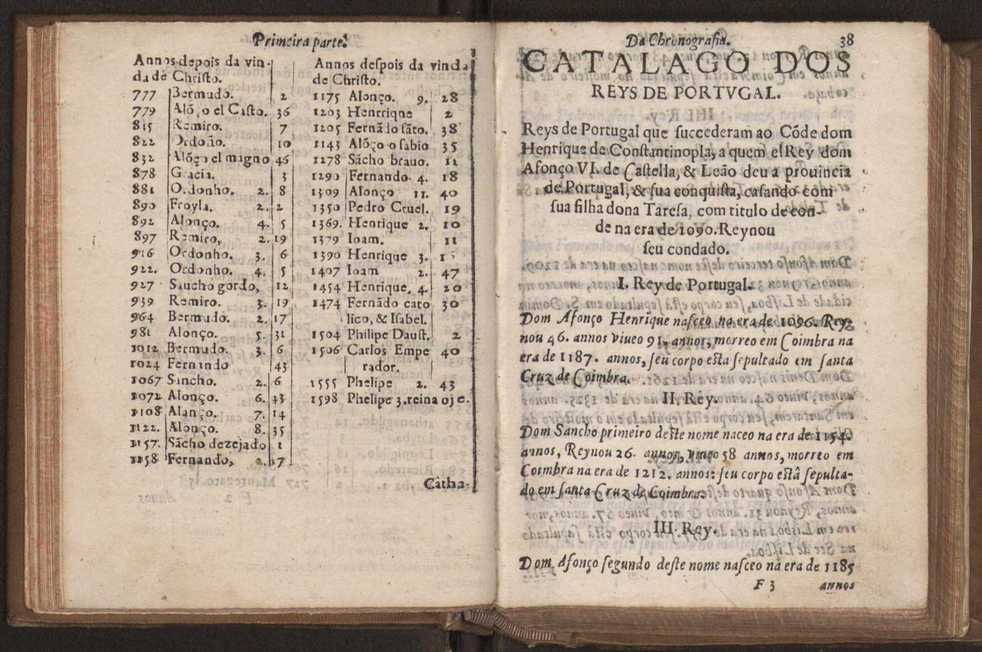 Primeira parte.
Annos depois da vin-
da de Christo.
777 Bermudo. 2
779 Alõço el Casto. 36
815 Remiro. 7
822 Ordoño. 10
832 Alõço el magno 46
878 Gracia. 3
881 Ordonho. 2. 8
890 Froyla. 2. 2
892 Alonço. 4. 5
897 Remiro, 2. 19
916 Ordonho. 3. 6
922. Ordonho. 4. 5
927 Sancho gordo, 12
939 Remiro. 3. 19
964 Bermudo. 2. 17
981 Alonço. 5. 31
1012 Bermudo. 3. 6
1024 Fernando 43
1067 Sancho. 2. 6
1072 Alonço. 6. 43
1108 Alanço. 7. 14
1122. Alonço. 8. 35
1157. Sãcho dezejado 1
1158 Fernando, 2. 17
Annos despois da vinda
de Christo.
1175 Alonço. 9. 28
1203 Henrrique 2
1205 Fernãdo sãto. 38
1143 Alõço o sabio 35
1278 Sãcho brauo. 11
1290 Fernando 4. 18
1309 Alonço 11. 40
1350 Pedro Cruel. 19
1369. Henrique 2. 10
1379 Ioam. 11
1390 Henrique 3.
1407 Ioam 2. 47
1454 Henrique, 4. 20
1474 Fernãdo cato 30
lico, & Isabel.
1504 Philipe Daust. 2
1506 Carlos Empe 40
rador.
1555 Phelipe 2. 43
1598 Phelipe 3. reina oje.
Catha-
Da Chronografia. 38
CATALAGO DOS
REYS DE PORTVGAL.
Reys de Portugal que succederam ao Cõde dom
Henrique de Constantinopla, a quem el Rey dom
Afonço VI. de Castella, & Leão deu a prouincia
de Portugal, & sua conquista, casando com
sua filha dona Taresa, com titulo de con-
de na era de 1090. Reynou
seu condado.
I. Rey de Portugal.
Dom Afonço Henrique nasceo na era de 1096. Rey-
nou 46. annos viueo 91. annos, morreo em Coimbra na
era de 1187. annos, seu corpo esta sepultado em santa
Cruz de Coimbra.
II. Rey.
Dom Sancho primeiro deste nome naceo na era de 1154.
annos, Reynou 26. annos, viueo 58 annos, morreo em
Coimbra na era de 1212. annos: seu corpo està sepulta-
do em santa Cruz de Coimbra.
III. Rey.
Dom Afonço segundo deste nome nasceo na era de 1185
F 3 annos